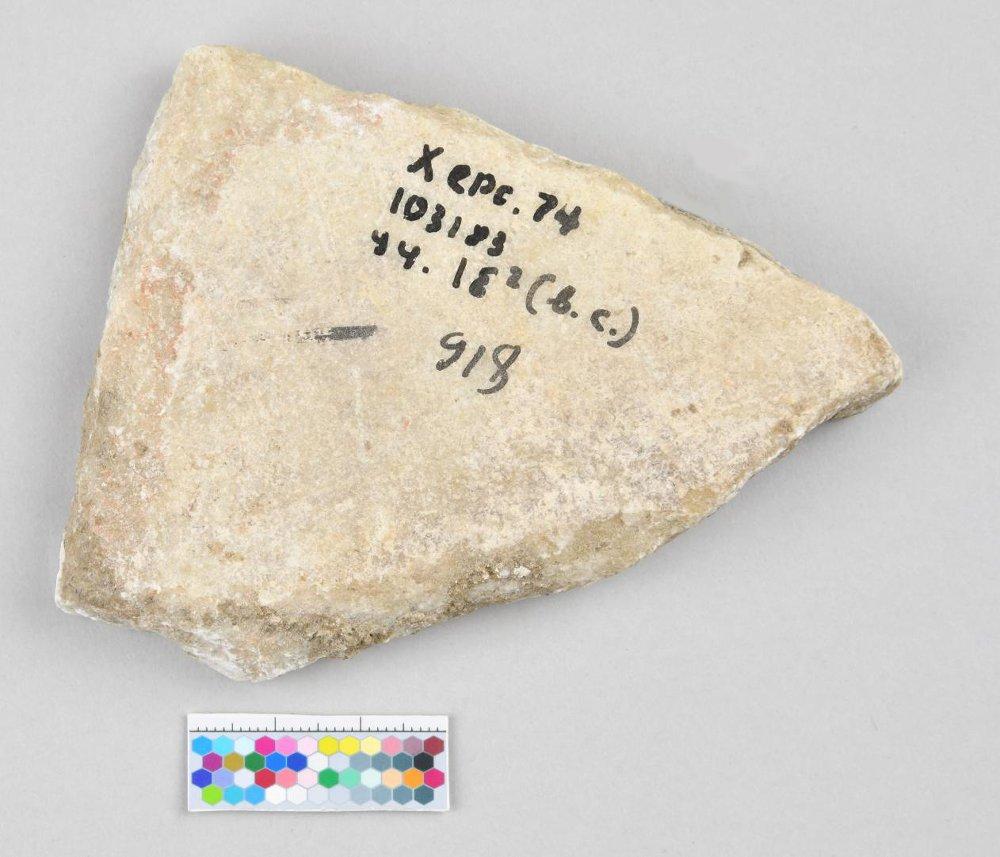 Херс. 74
103183
44. 18² (в.с.)
918